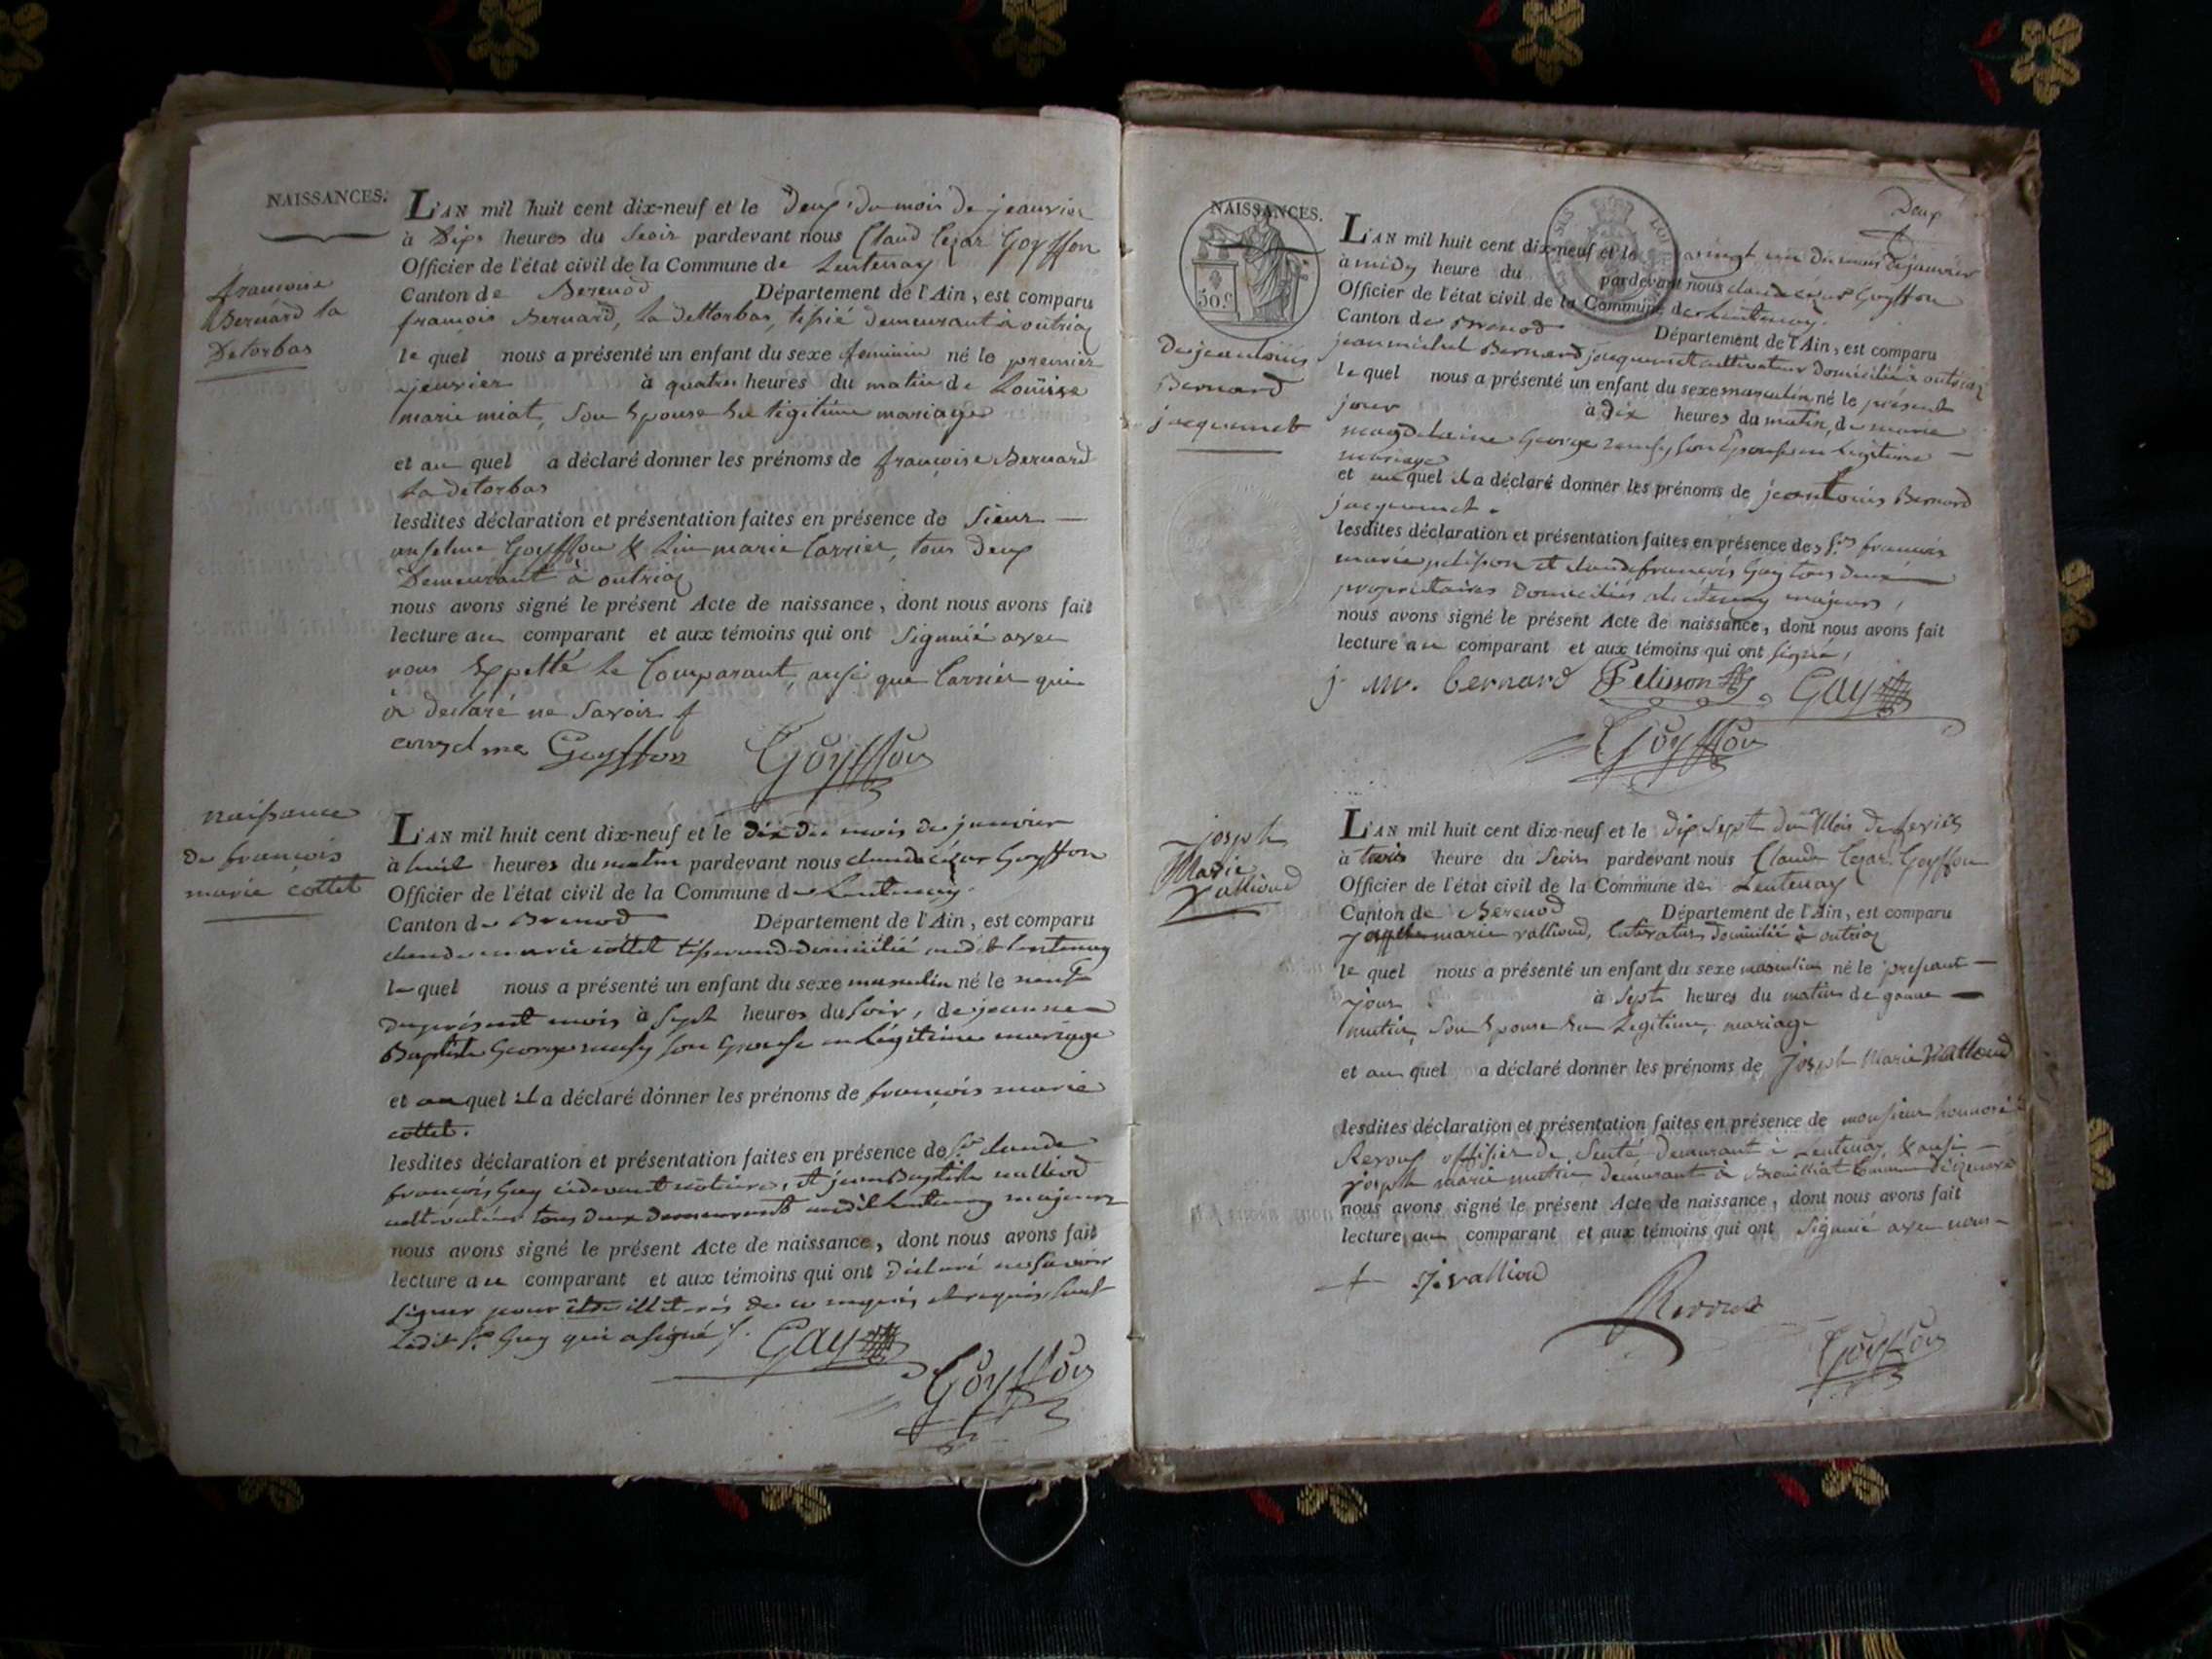 NAISSANCES.
françoise
Bernard la
Detorbas
L'AN mil huit cent dix-neuf et le deux du mois de jeanvier
à Dix heures du Seoir pardevant nous Claud Cezar Goyffon
Officier de l'état civil de la Commune de Lentenay
Canton de Berenod Département de l'Ain, est comparu
françois Bernard, la dettorbas, tessié demeurant à outriaz
le quel nous a présenté un enfant du sexe feminin né le premier
jeanvier à quatre heures du matin de Loüise
marie miat, son Epouse En légitime mariage
et au quel a déclaré donner les prénoms de françoise Bernard
la detorbas
lesdites déclaration et présentation faites en présence de Sieur
anselme Goyffon & marie Carrier, tous deux
Demeurant à outriaz
nous avons signé le présent Acte de naissance, dont nous avons fait
lecture au comparant et aux témoins qui ont Signnié avec
nous Exyetté le Comparant, ansi que Carrier qui
a declaré ne Savoir f
anselme Goyffon Goyffon
naissance
de françois
marie cottet
L'AN mil huit cent dix-neuf et le dix du mois de janvier
à huit heures du matin pardevant nous claude cézar Goyffon
Officier de l'état civil de la Commune de Lentenay.
Canton de Brenod Département de l'Ain, est comparu
claude marie cottet tisserand domicilié audit lentenay
le quel nous a présenté un enfant du sexe masculin né le neuf
du présent mois à sept heures du soir, de jeanne
Baptiste George son Epouse en légitime mariage
et au quel il a déclaré donner les prénoms de françois marie
cottet.
lesdites déclaration et présentation faites en présence de Sr. claude
françois Guy cidevant notaire, et jean Baptiste vallioud
cultivateur tous deux demeurants audit Lentenay majeurs
nous avons signé le présent Acte de naissance, dont nous avons fait
lecture au comparant et aux témoins qui ont déclaré ne savoir
signer pour être illiterés de ce enquis et requis sauf
Ledit Sr Guy qui a signé f. GAY
Goyffon
Deux
NAISSANCES.
50 c
De jean louis
Bernard
jacquemet
L'AN mil huit cent dix-neuf et le vingt un du mois de janvier
à midy heure du pardevant nous claude cezar Goyffon
Officier de l'état civil de la Commune de Lentenay.
Canton de Brenod Département de l'Ain, est comparu
jean michel Bernard jacquemet cultivateur domicilié à outriaz
le quel nous a présenté un enfant du sexe masculin né le présent
jour à dix heures du matin, de marie
magdelaine George son Epouse en légitime
mariage
et au quel il a déclaré donner les prénoms de jean louis Bernard
jacquemet.
lesdites déclaration et présentation faites en présence des Srs françois
marie pelisson et claude françois Guy tous deux
proprietaires domiciliés a Lentenay majeurs,
nous avons signé le présent Acte de naissance, dont nous avons fait
lecture au comparant et aux témoins qui ont signé,
j. m. bernard Pelisson GAY
Goyffon
joseph
Marie
Vallioud
L'AN mil huit cent dix-neuf et le dix Sept du Mois de fevrier
à trois heure du Seoir pardevant nous Claude Cezar Goyffon
Officier de l'état civil de la Commune de Lentenay
Canton de Berenod Département de l'Ain, est comparu
marie vallioud, domicilié à outriaz
le quel nous a présenté un enfant du sexe masculin né le present
jour à Sept heures du matin de
mutin, Son Epouse En Legitime, mariage
et au quel a déclaré donner les prénoms de Joseph Marie Vallioud
lesdites déclaration et présentation faites en présence de monsieur honnoré
Reroux offisier de Senté demurant à Lentenay, & ausi
joseph marie mutin demurant à Brouilliat Commune
nous avons signé le présent Acte de naissance, dont nous avons fait
lecture au comparant et aux témoins qui ont Signnié avec nous
j. vallioud
Reroux
Goyffon